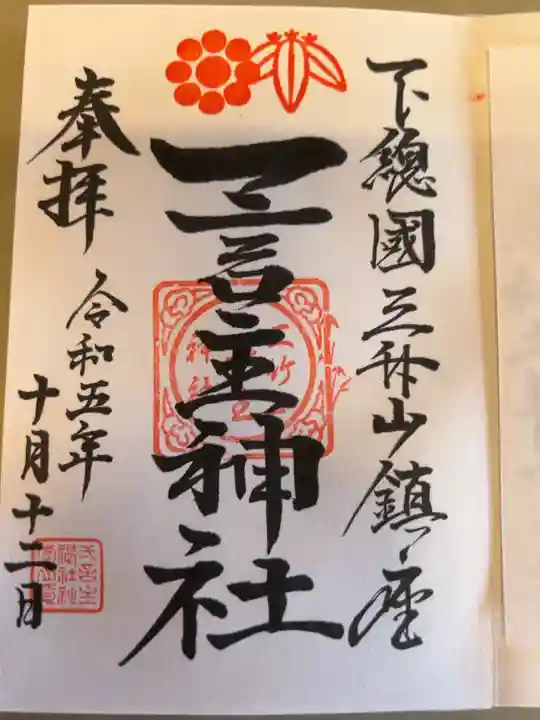 下總國三竹山鎮座
一言主神社
奉拝
令和五年
十月十二日